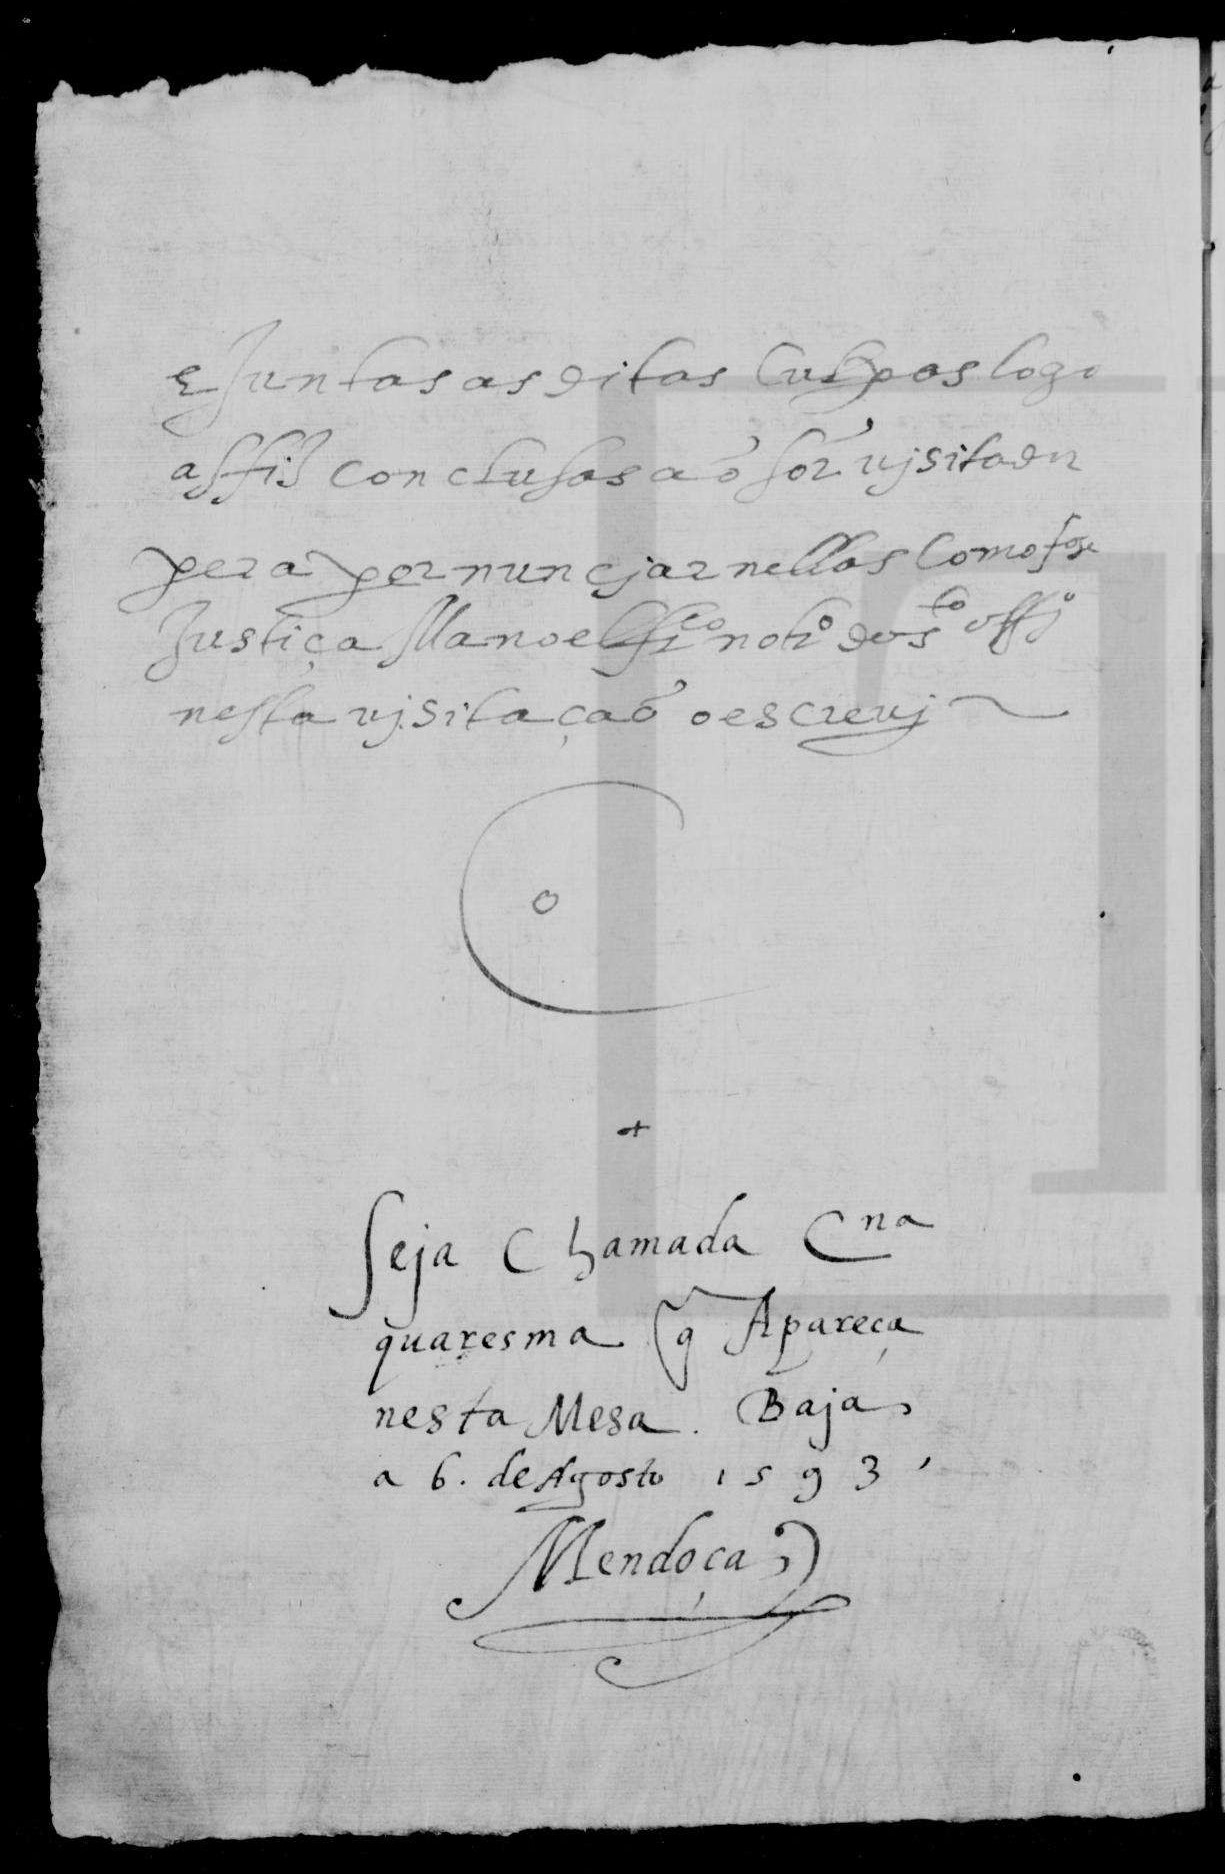 e Juntas as ditas Culpas logo
as fis conclusas ao sor vjsitador
pera pernuncjar nellas Como fose
Justiça Manoel frco notro do sto offo
nesta vjsitaçaõ o escrevj
C o
+
Seja Chamada Cna
quaresma q Apareça
nesta Mesa. Baja,
a 6. de Agosto 1593,
Mendoça